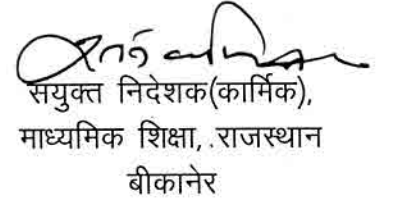 सयुक्त निदेशक(कार्मिक),
माध्यमिक शिक्षा, .राजस्थान
बीकानेर